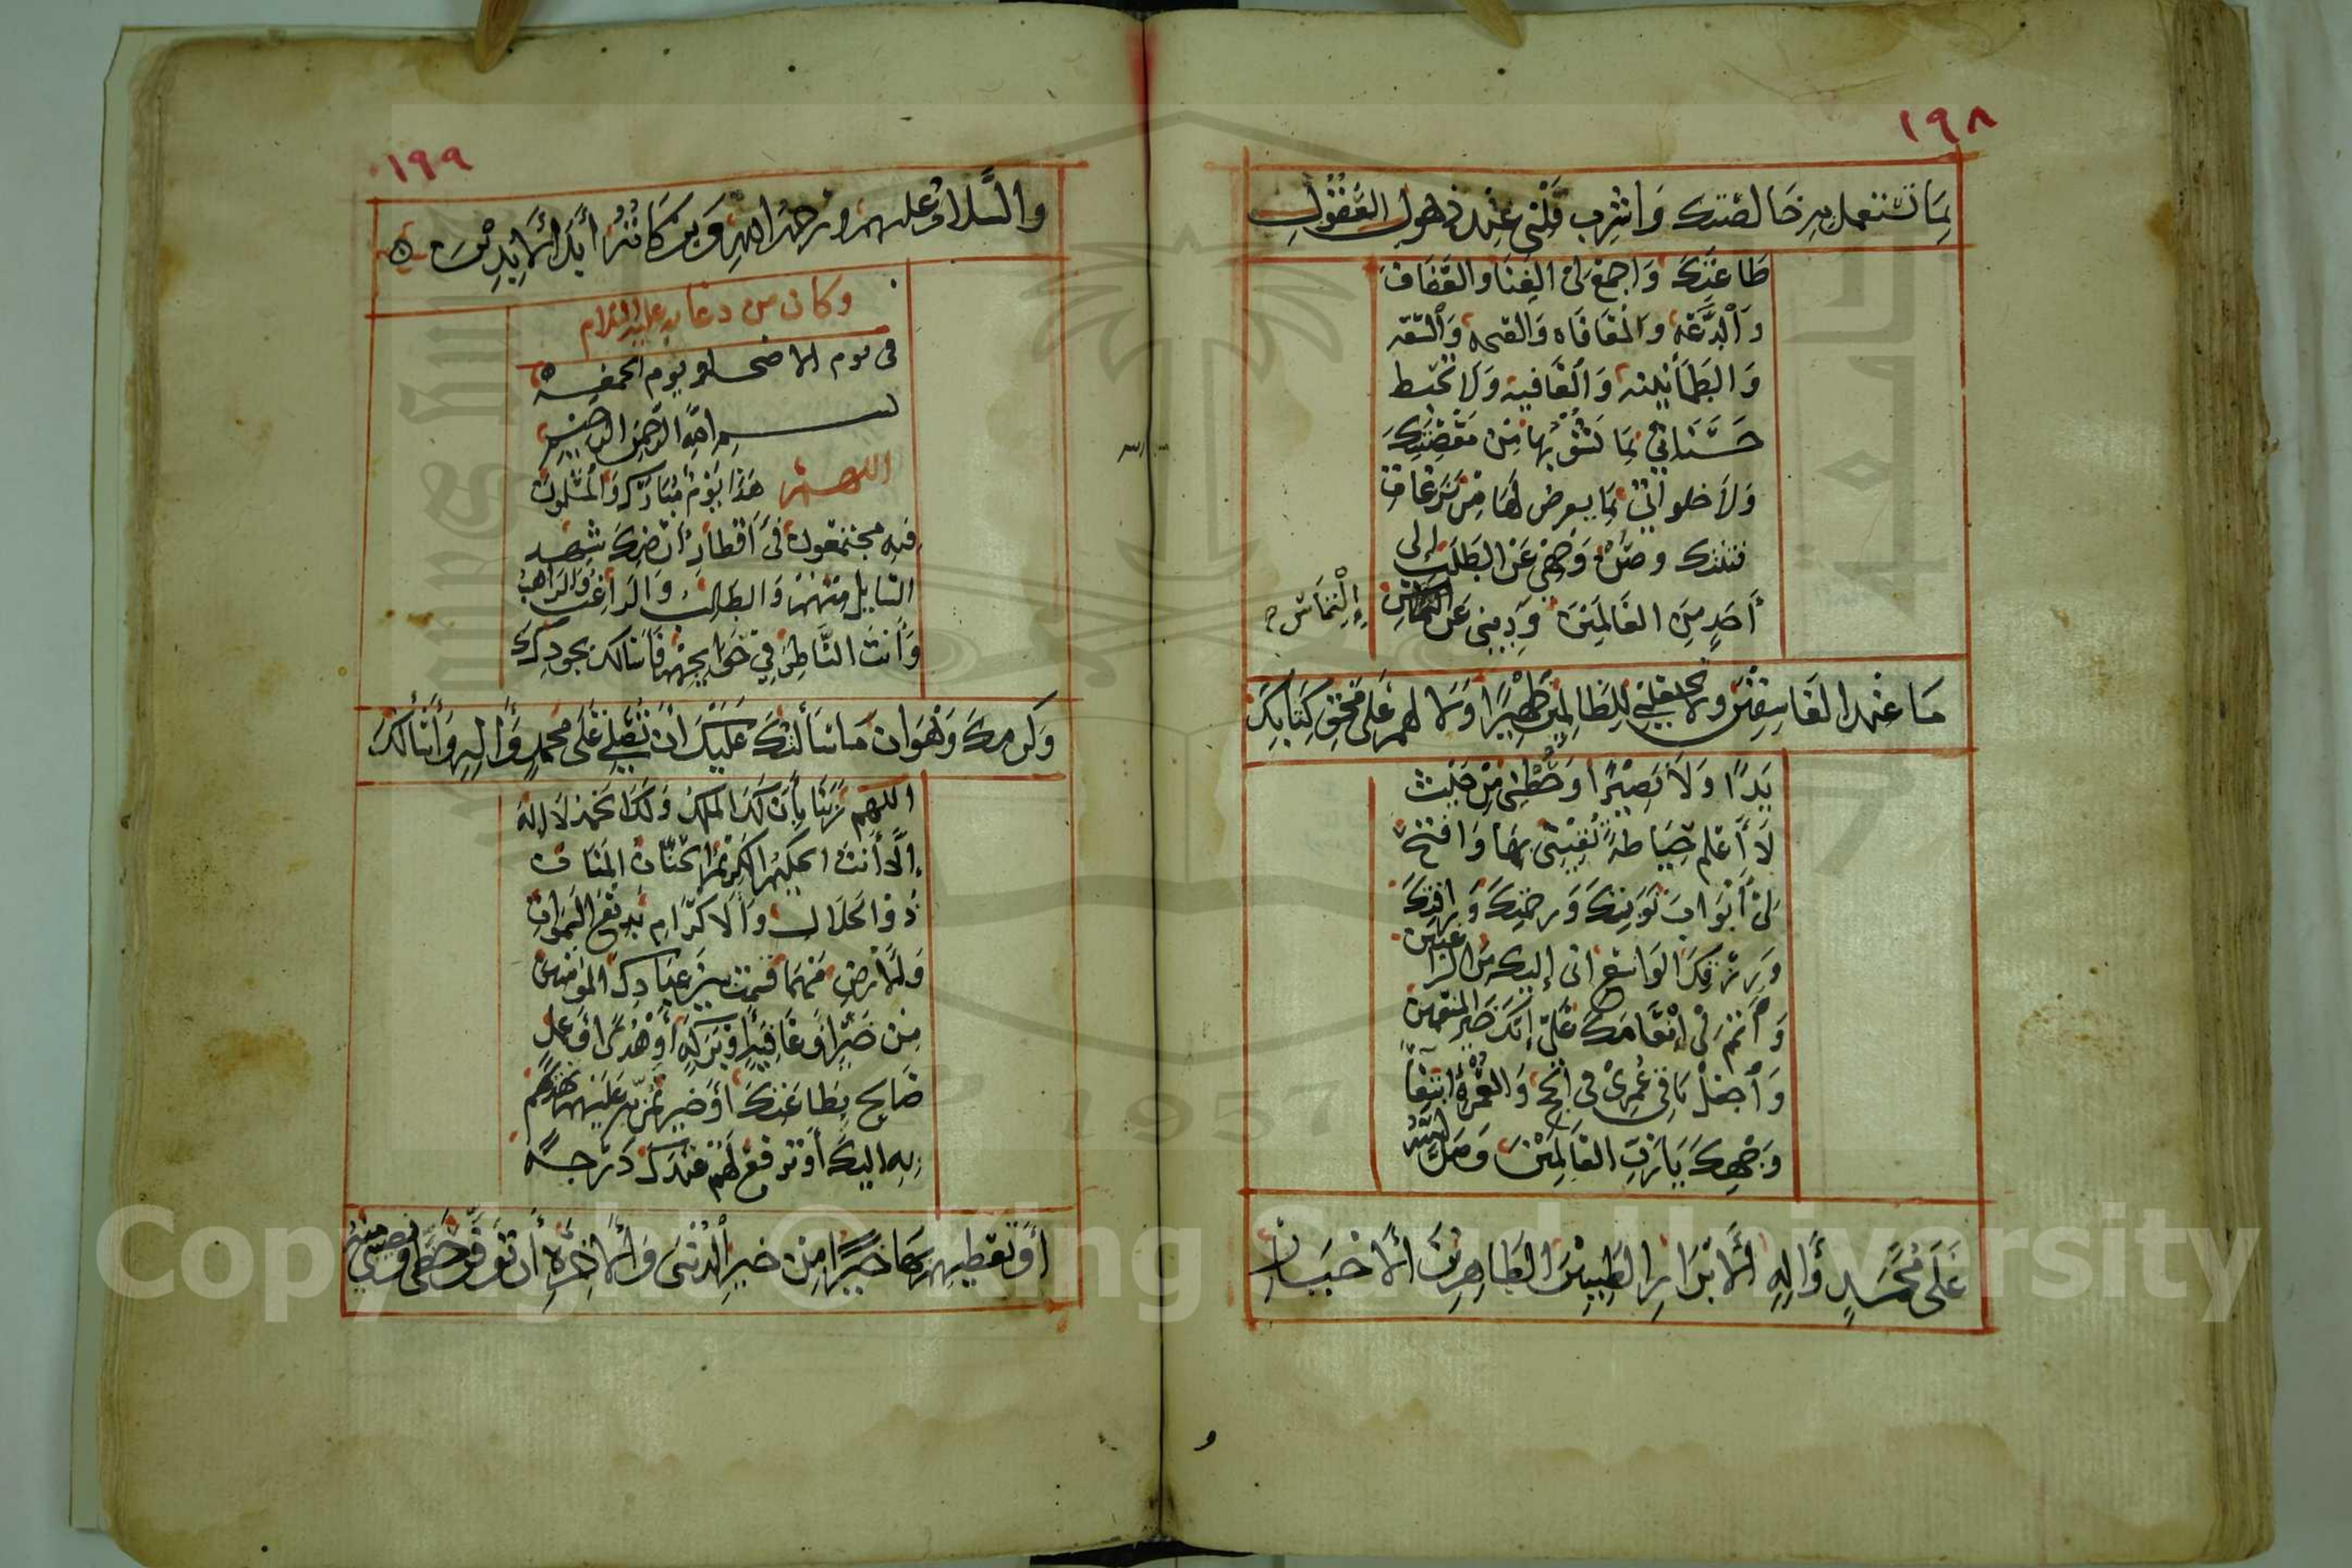 ١٩٨
بِمَا تستعمل به خالصتك وَأشْرِب قَلْبِي عِنْد ذهول العُقُولِ
طَاعَتَكَ وَاجمَعْ لِي الغِنَا والعَفَافَ
وَالدَّعَةَ وَالمُعَافَاه وَالصحه وَالسَّعَه
وَالطُمَأْنِينه وَالعَافيه وَلا تُحْبط
حَسَنَاتِي بِمَا يَشُوْبُهَا مِنْ مَعْصِيَتِكَ
وَلاَ خلواتِي بِمَا يعرضُ لَهَا مِنْ نَزَغَاتِ
فتنتك وصُنْ وَجْهِي عَن الطَلَبِ إلى
أَحَدٍ مِنَ العَالَمِيْنَ وَذبنِي عَن
إِلْتِمَاسِ
مَا عْند الفَاسِقِيْنَ ولا تجعلني لِلظَّالِمِيْنَ ظَهِيْرًا وَلا لهم عَلَى مَحْوِ كِتَابِكَ
يَدًا وَلاَ نَصِيْرًا وَحُطْنِي مِنْ حَيْثُ
لاَ أَعْلَم حِيَاطَةً تَقِيْنِي بِهَا وَافتحْ
لِيْ أَبْوَابَ تَوْبَتِكَ وَرحمتِكَ وَرافتِكَ
وَرِزْقِكَ الوَاسِعِ انى إليك مِنَ الرَّاغبين
وَأَتْمِمْ لِيْ إِنْعَامَكَ عَلَيَّ إنَّكَ خَيرُ المنعمين
وَاجْعَلْ بَاقِي عُمرِيْ في الحَجِّ وَالعُمْرَةِ ابْتِغَآ
وَجْهِكَ يَا رَبَّ العَالَمِيْنَ وَصَلَّى اللهُ
عَلَى مُحَمَّدٍ وَآلِهِ الأَبْرَارِ الطَّيِّبِيْنَ الطَاهِرِيْنَ الأَخيَارِ
١٩٩
والسَّلامُ عليهم ورحمةُ اللهِ وَبَرَكَاتُهُ أَبَدَ الأَبِدِيْنَ ه
وكان من دعايه عليه السلام
في يوم الاضحى ويوم الجمعة
بسم اللهِ الرَّحمنِ الرَّحيم
اللهم هَذَا يَوْمٌ مُبَارَك وَالمُسْلِمُونَ
فيه مجتمعون فِيْ أَقْطَارِ أَرْضِكَ يشهد
السَايِل مِنْهُمْ وَالطَالِبُ وَالرَاغِبُ وَالرَاهِبُ
وَأَنتَ النَّاظِرُ فِيْ حَوَايِجِهِم فَأَسَالك بجودِكَ
وَكَرَمِكَ وَهَوَانِ مَا سَأَلتُكَ عَلَيْكَ أَنْ تُصَلِّي عَلَى مُحَمدٍ وَآلِهِ وَأَسْأَلُكَ
اللهُمَ رَبَّنَا بِأَنَّ لَكَ المُلْكَ وَلَكَ الحَمْدَ لاَ إله
إِلاَّ أَنتَ الحَلِيْمُ الكَرِيْمُ الحَنَّان المَنَّان
ذُو الجَلاَلِ وَالاكْرَامِ بَدِيْعُ السَّمَوَاتِ
وَالأَرْضِ مَهْمَا قسمت بَيْنَ عِبَادِكَ المؤمنين
مِنْ خَيْرٍ أَوْ عَافِيَةٍ أَوْ بَرَكَةٍ أَوْ هُدًى أوْ عَمل
صَالِحٍ بِطَاعَتِكَ أَوْ خَيرٍ تَمُنُّ بِهِ عَلَيْهِمْ تَهْدِيْهِم
بِهِ اليك أَوْ تَرفَعُ لَهُمْ عِنْدَكَ دَرَجةً
أَوْ تُعْطِيهِمْ بِهَا خَيْرًا مِنْ خَيرِ الدُّنْيَا وَالأَخِرَةِ أَنْ تُوَفِّرَ حَظِّي وَنَصِيبِي مِنْهُ
Copyright © King Saud University
1957